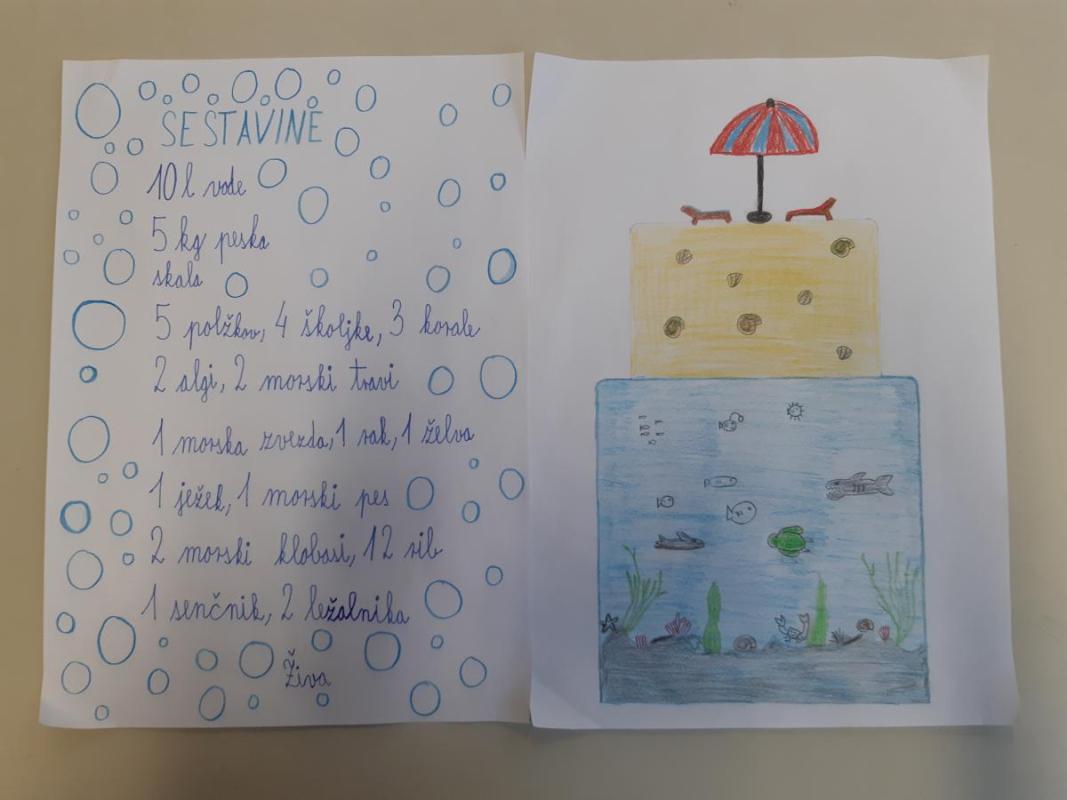 SESTAVINE
10 l vode
5 kg peska
skala
5 polžkov, 4 školjke, 3 korale
2 algi, 2 morski travi
1 morska zvezda, 1 rak, 1 želva
1 ježek, 1 morski pes
2 morski klobasi, 12 rib
1 senčnik, 2 ležalnika
Živa